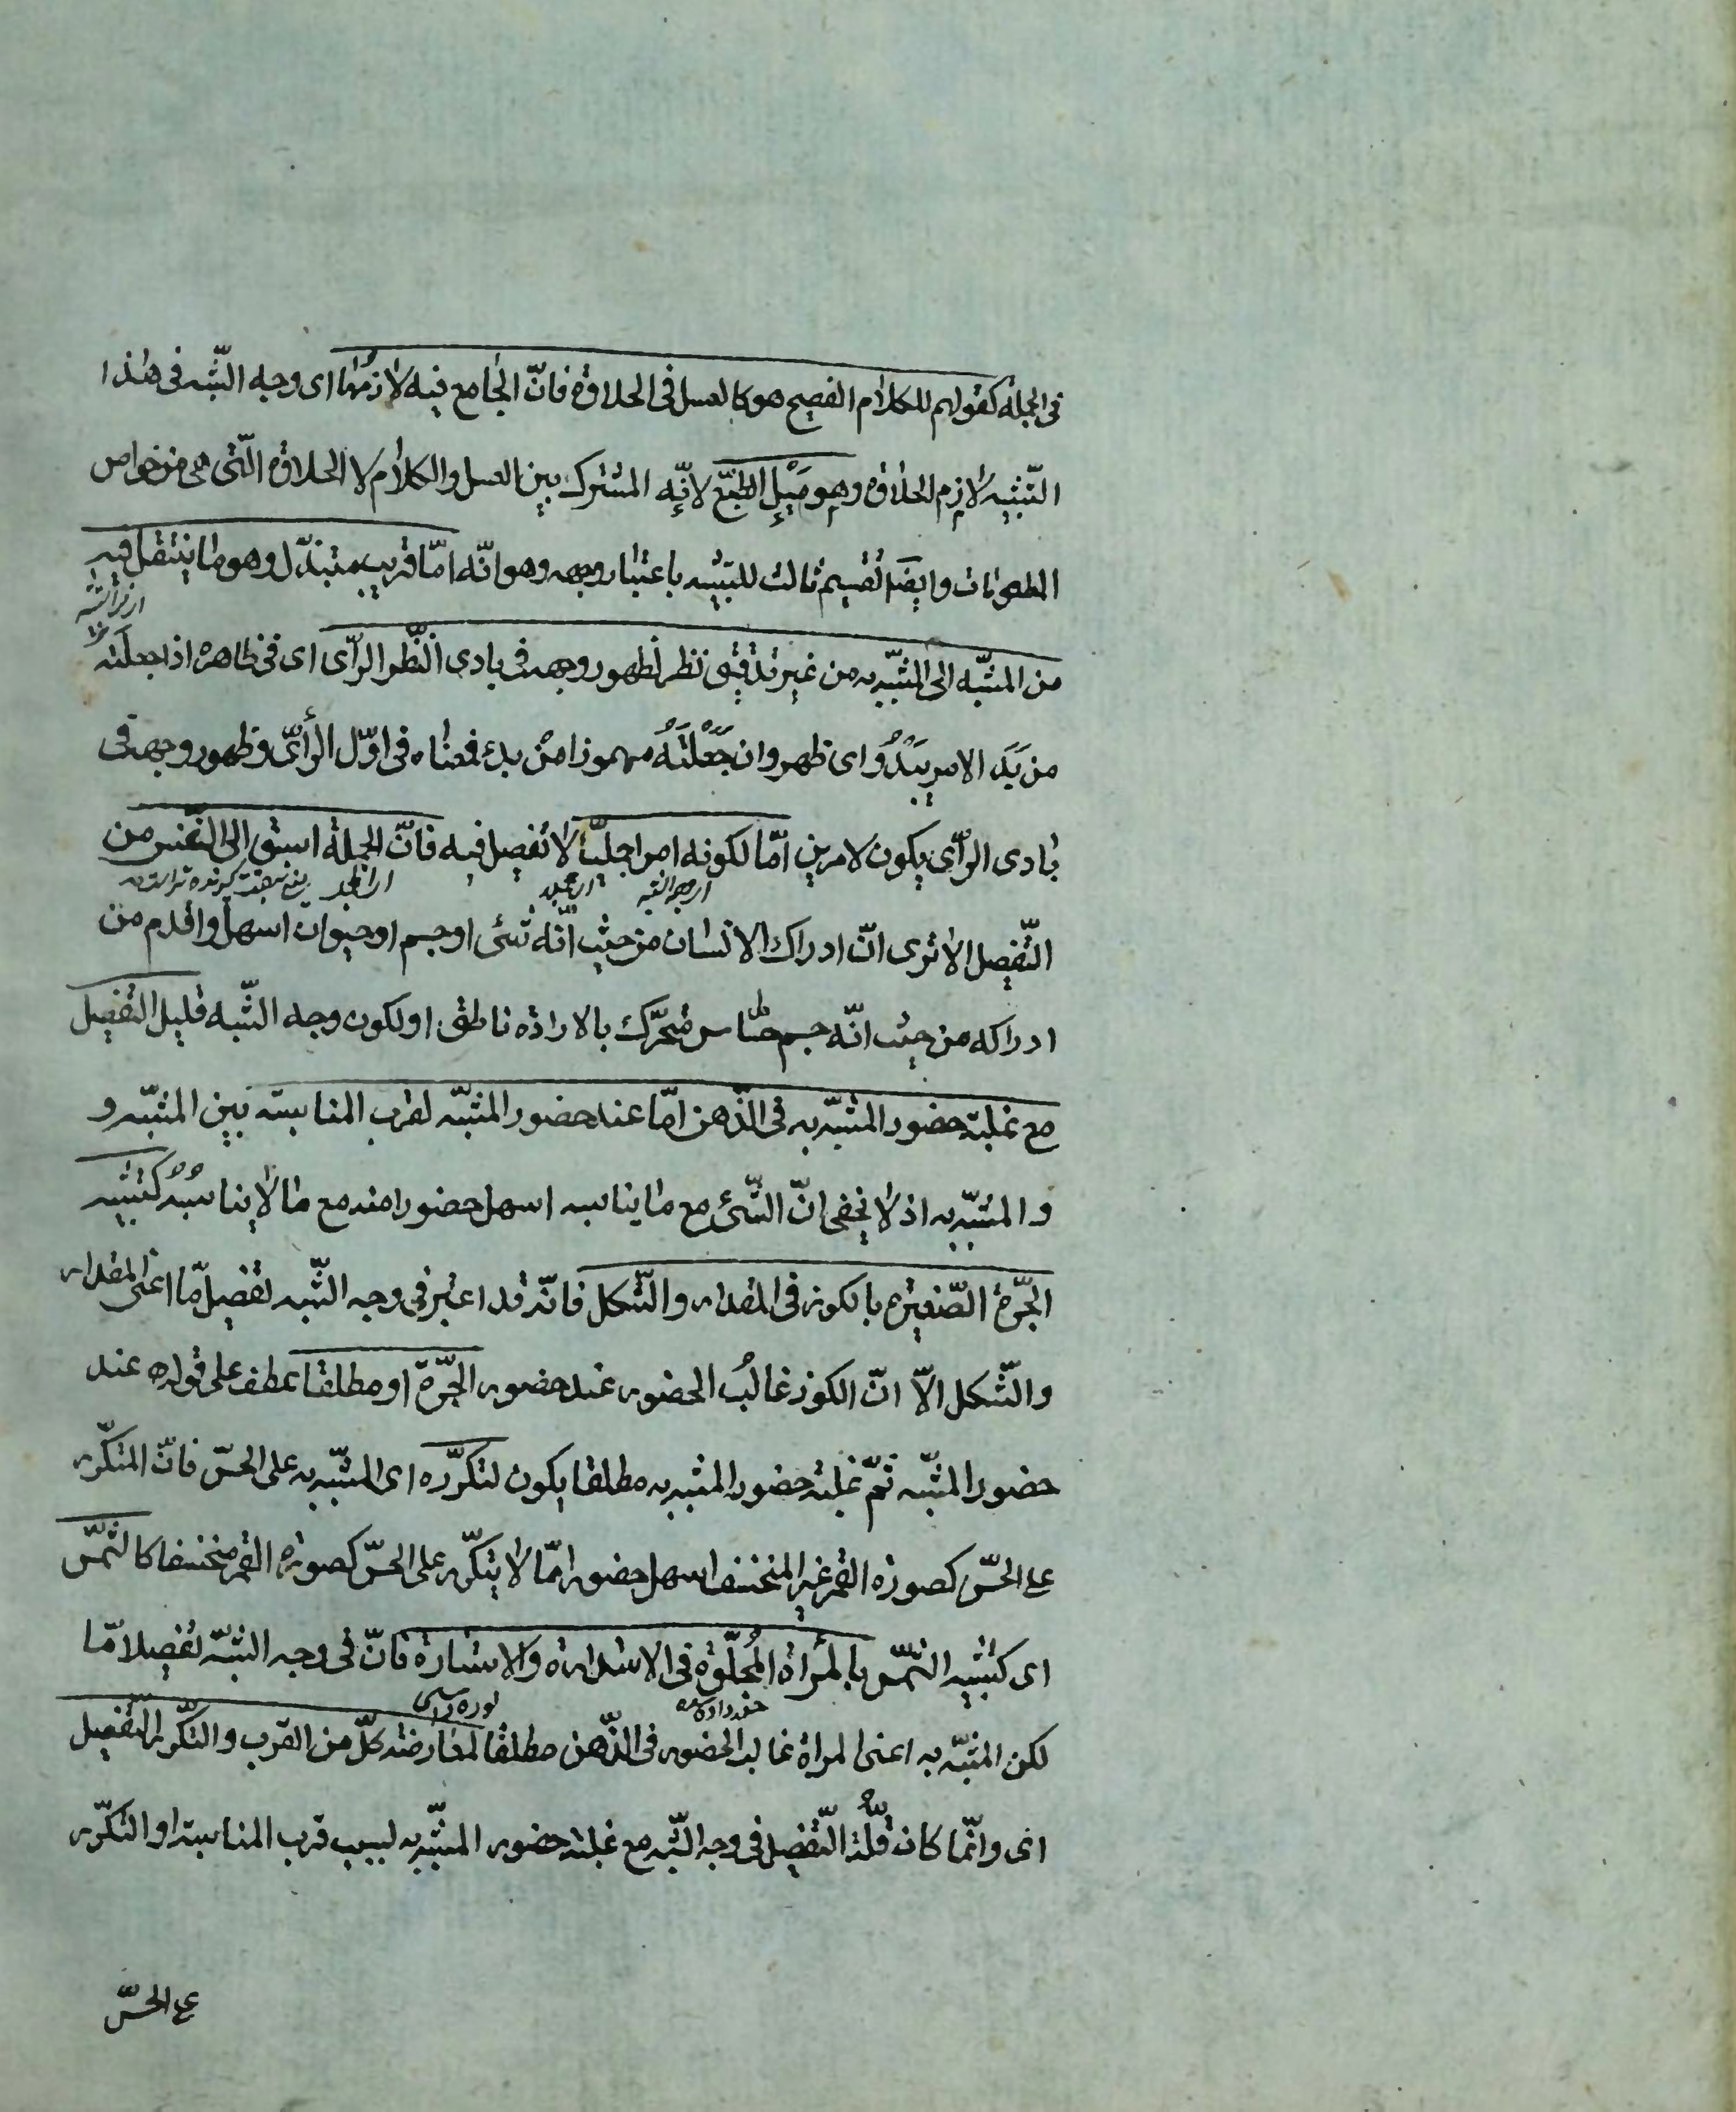 فى الجملة كقولهم للكلام الفصيح هو كالعسل فى الحلاوة فانّ الجامع فيه لازمها اى وجه الشّبه فى هذا
التّشبيه لازم الحلاوة وهو مَيْل الطبع لانّه المشترك بين العسل والكلام لا الحلاوة الّتى هى من خواص
المطعومات وايضا تقسيم ثالث للتشبيه باعتبار وجهه وهو انّه امّا قريب مبتذل وهو ما ينتقل فيه
من المشبّه الى المشبّه به من غير تدقيق نظر لظهور وجهه فى بادى النّظر الرّأى اى فى ظاهره اذا جعلته
من بَدَ الامر يَبْدُوَ اى ظهر وان جَعَلْتَهُ مهموزا مِنْ بدء فمعناه فى اوّل الرأى وظهور وجهه فى
بادى الرّأى يكون لامرين امّا لكونه امرا جليّا لا تفصيل فيه فانّ الجملة اسبق الى النّفس من
التّفصيل الا ترى انّ ادراك الانسان من حيث انّه شئ او جسم او حيوان اسهل واقدم من
ادراكه من حيث انّه جسم حسّاس متحرّك بالارادة ناطق او لكون وجه الشّبه قليل التفصيل
مع غلبة حضور المشبّه به فى الذّهن امّا عند حضور المشبّه لقرب المناسبة بين المشبّه و
و المشبّه به اذ لا يخفى انّ الشّئ مع ما يناسبه اسهل حضورا منه مع ما لا يناسبُهُ كتشبيه
الجرّة الصّغيرة بالكوز فى المقدار والشّكل فانّه قد اعتبر فى وجه الشّبه تفصيل مّا اعنى المقدار
والشّكل الاّ انّ الكوز غالبُ الحضور عند حضور الجرّة او مطلقا عطف على قوله عند
حضور المشبّه ثمّ غلبة حضور المشبه به مطلقا يكون لتكرّره اى المشبّه به على الحسّ فانّ المتكّرر
على الحسّ كصورة القمر غير المنخسف اسهل حضورا ممّا لا يتكّرر على الحسّ كصورة القمر منخسفا كالشّمس
اى كتشبيه الشّمس بالمرأة المجلّوة فى الاستدارة والاستنارة فانّ فى وجه الشبّه تفصيلا مّا
لكن المشبّه به اعنى المراة غالب الحضور فى الذّهن مطلقا لمعارضة كلّ من القرب والتكّرر التّفصيل
اى وانّما كان قلّة التّفصيل فى وجه الشّبه مع غلبة حضور المشبّه به لسبب قرب المناسبة او التكّرر
على الحسّ